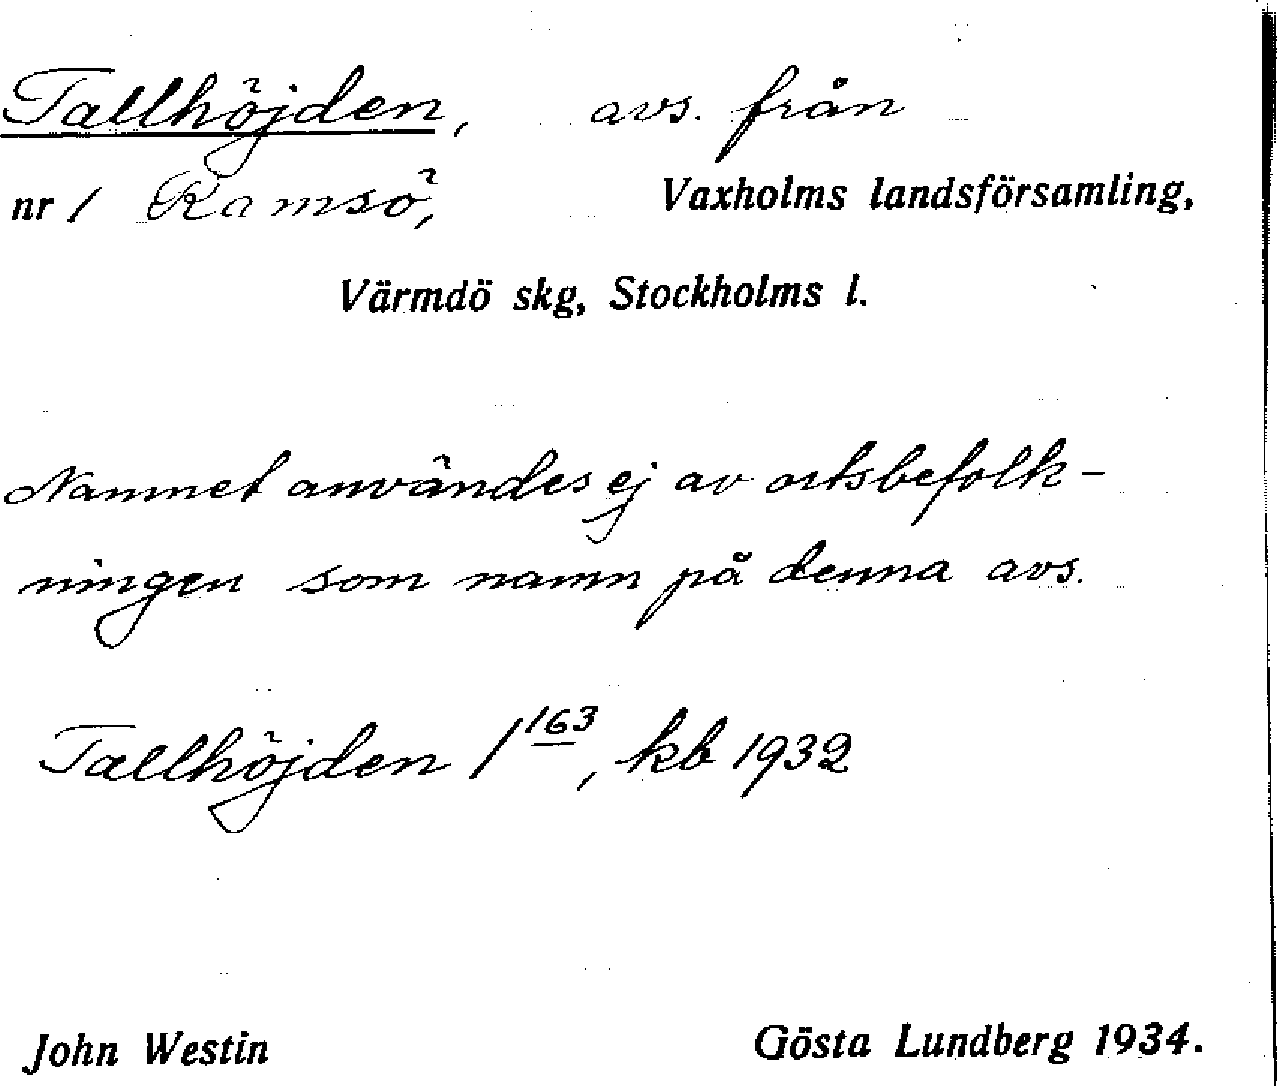 Tallhöjden, avs. från
nr 1 Ramsö, Vaxholms landsförsamling,
Värmdö skg, Stockholms l.
Namnet användes ej av ortsbefolk-
ningen som namn på denna avs.
Tallhöjden 1 163, kb 1932
John Westin Gösta Lundberg 1934.